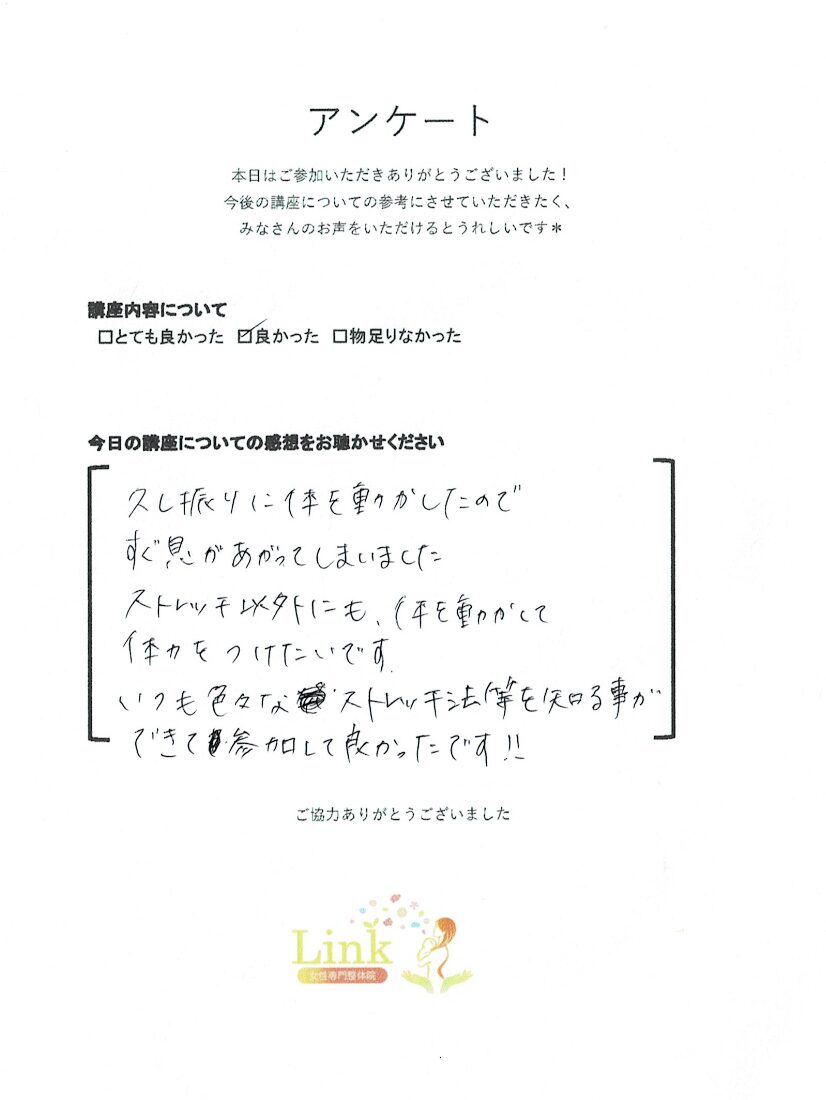 アンケート
本日はご参加いただきありがとうございました！
今後の講座についての参考にさせていただきたく、
みなさんのお声をいただけるとうれしいです＊
講座内容について
□とても良かった ☑良かった □物足りなかった
今日の講座についての感想をお聴かせください
久し振りに体を動かしたので
すぐ息があがってしまいました
ストレッチ以外にも、体を動かして
体力をつけたいです
いつも色々なストレッチ法等を知る事が
できて参加して良かったです!!
ご協力ありがとうございました
Link
女性専門整体院